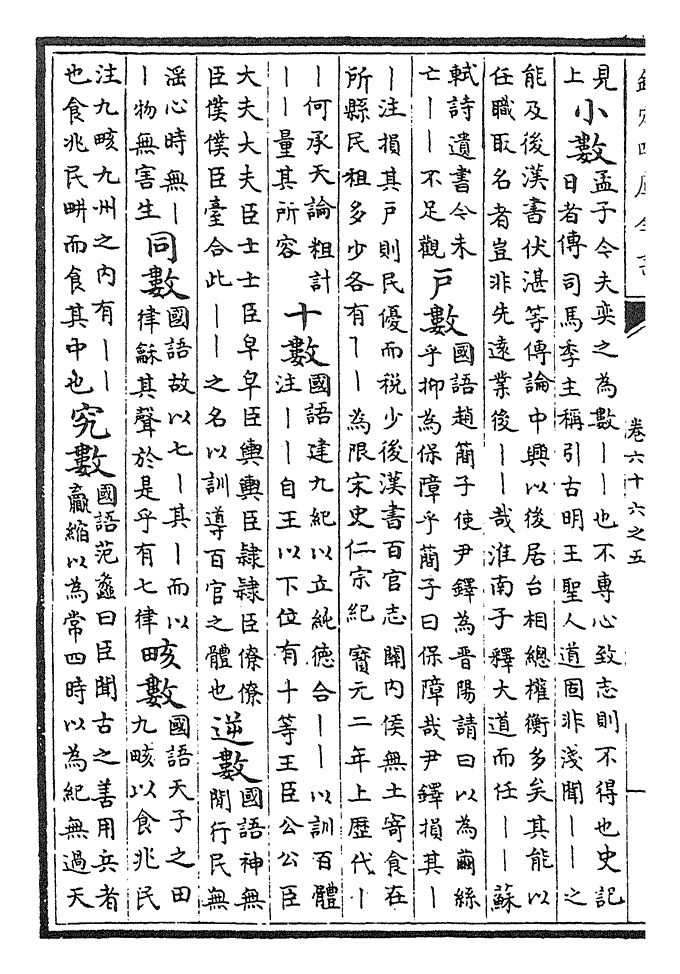 卷六十六之五
一
見
上
小數
孟子今夫奕之為數丨丨也不專心致志則不得也史記
日者傳司馬季主稱引古明王聖人道固非淺聞丨丨之
能及後漢書伏湛等傳論中興以後居台相總權衡多矣其能以
任職取名者豈非先遠業後丨丨哉淮南子釋大道而任丨丨蘇
軾詩遺書今未
亡丨丨不足觀
戶數
國語趙簡子使尹鐸為晋陽請曰以為繭絲
乎抑為保障乎簡子曰保障哉尹鐸損其丨
丨注損其戶則民優而稅少後漢書百官志關內侯無土寄食在
所縣民租多少各有丨丨為限宋史仁宗紀寶元二年上歷代丨
丨何承天論粗計
丨丨量其所容
十數
國語建九紀以立純德合丨丨以訓百體
注丨丨自王以下位有十等王臣公公臣
大夫大夫臣士士臣皁皁臣輿輿臣隸隸臣僚僚
臣僕僕臣臺合此丨丨之名以訓導百官之體也
逆數
國語神無
閒行民無
淫心時無丨
丨物無害生
同數
國語故以七丨其丨而以
律龢其聲於是乎有七律
畡數
國語天子之田
九畡以食兆民
注九畡九州之內有丨丨
也食兆民耕而食其中也
究數
國語范蠡曰臣聞古之善用兵者
贏縮以為常四時以為紀無過天